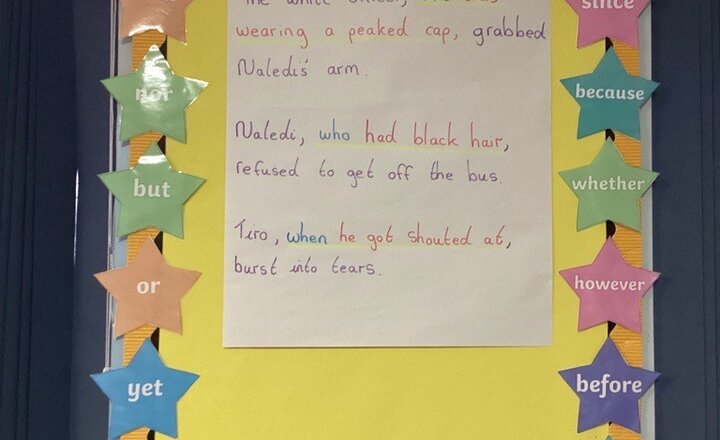 since
wearing a peaked cap, grabbed
Naledi's arm.
nor
because
Naledi, who had black hair,
refused to get off the bus.
but
whether
Tiro, when he got shouted at,
burst into tears.
or
however
yet
before